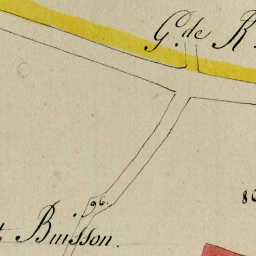 G. de R
96.
80
t Buisson.